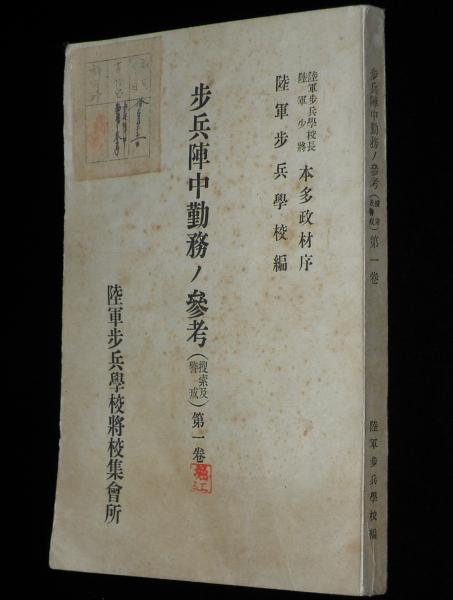 陸軍步兵學校長
陸軍少將
本多政材序
陸軍步兵學校編
步兵陣中勤務ノ參考(搜索及警戒)第一卷
堀江
陸軍步兵學校將校集會所
步兵陣中勤務ノ參考(搜索及警戒)第一卷
陸軍步兵學校編